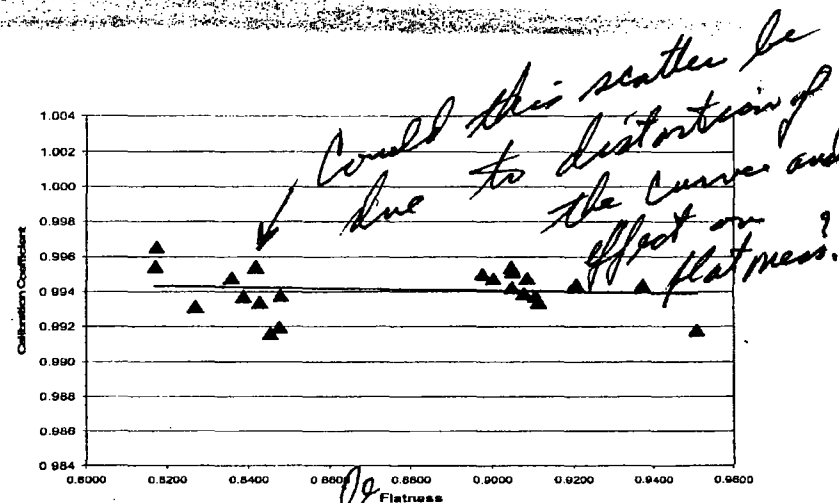 Could this scatter be
due to distortion of
the curve and
effect on
flatness?
1.004
1.002
1.000
0.998
0.996
0.994
0.992
0.990
0.988
0.986
0.984
Calibration Coefficient
0.8000 0.8200 0.8400 0.8600 0.8800 0.9000 0.9200 0.9400 0.9600
Flatness